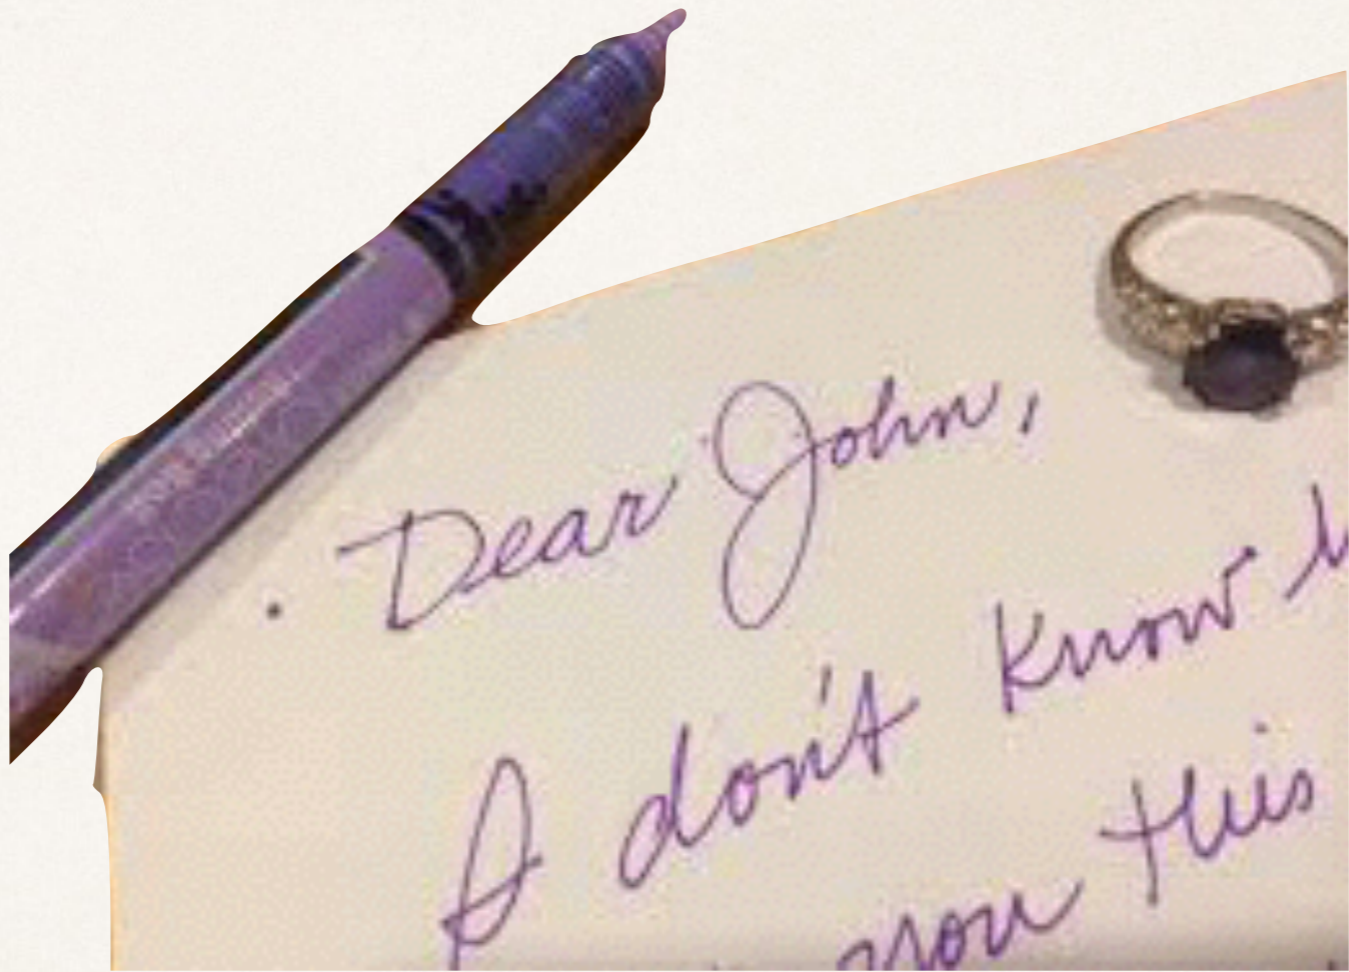 Dear John,
I don't know
you this